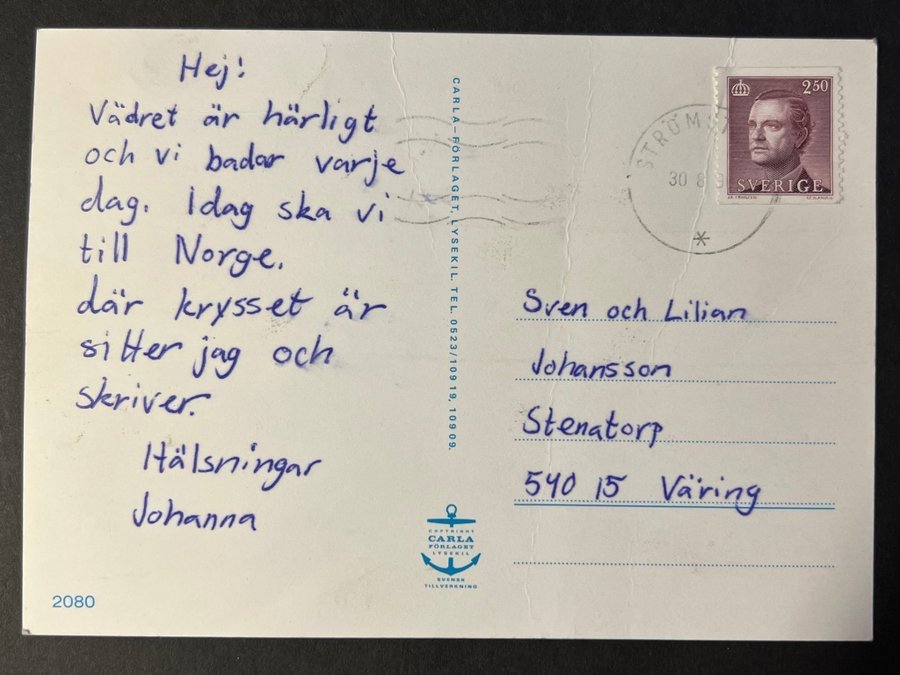 Hej!
Vädret är härligt
och vi badar varje
dag. Idag ska vi
till Norge.
där krysset är
sitter jag och
skriver.
Hälsningar
Johanna
2080
CARLA-FÖRLAGET, LYSEKIL. TEL. 0523/109 19, 109 09.
COPYRIGHT
CARLA
FÖRLAGET
LYSEKIL
SVENSK
TILLVERKNING
2.50
SVERIGE
30 8
Sven och Lilian
Johansson
Stenatorp
540 15 Väring